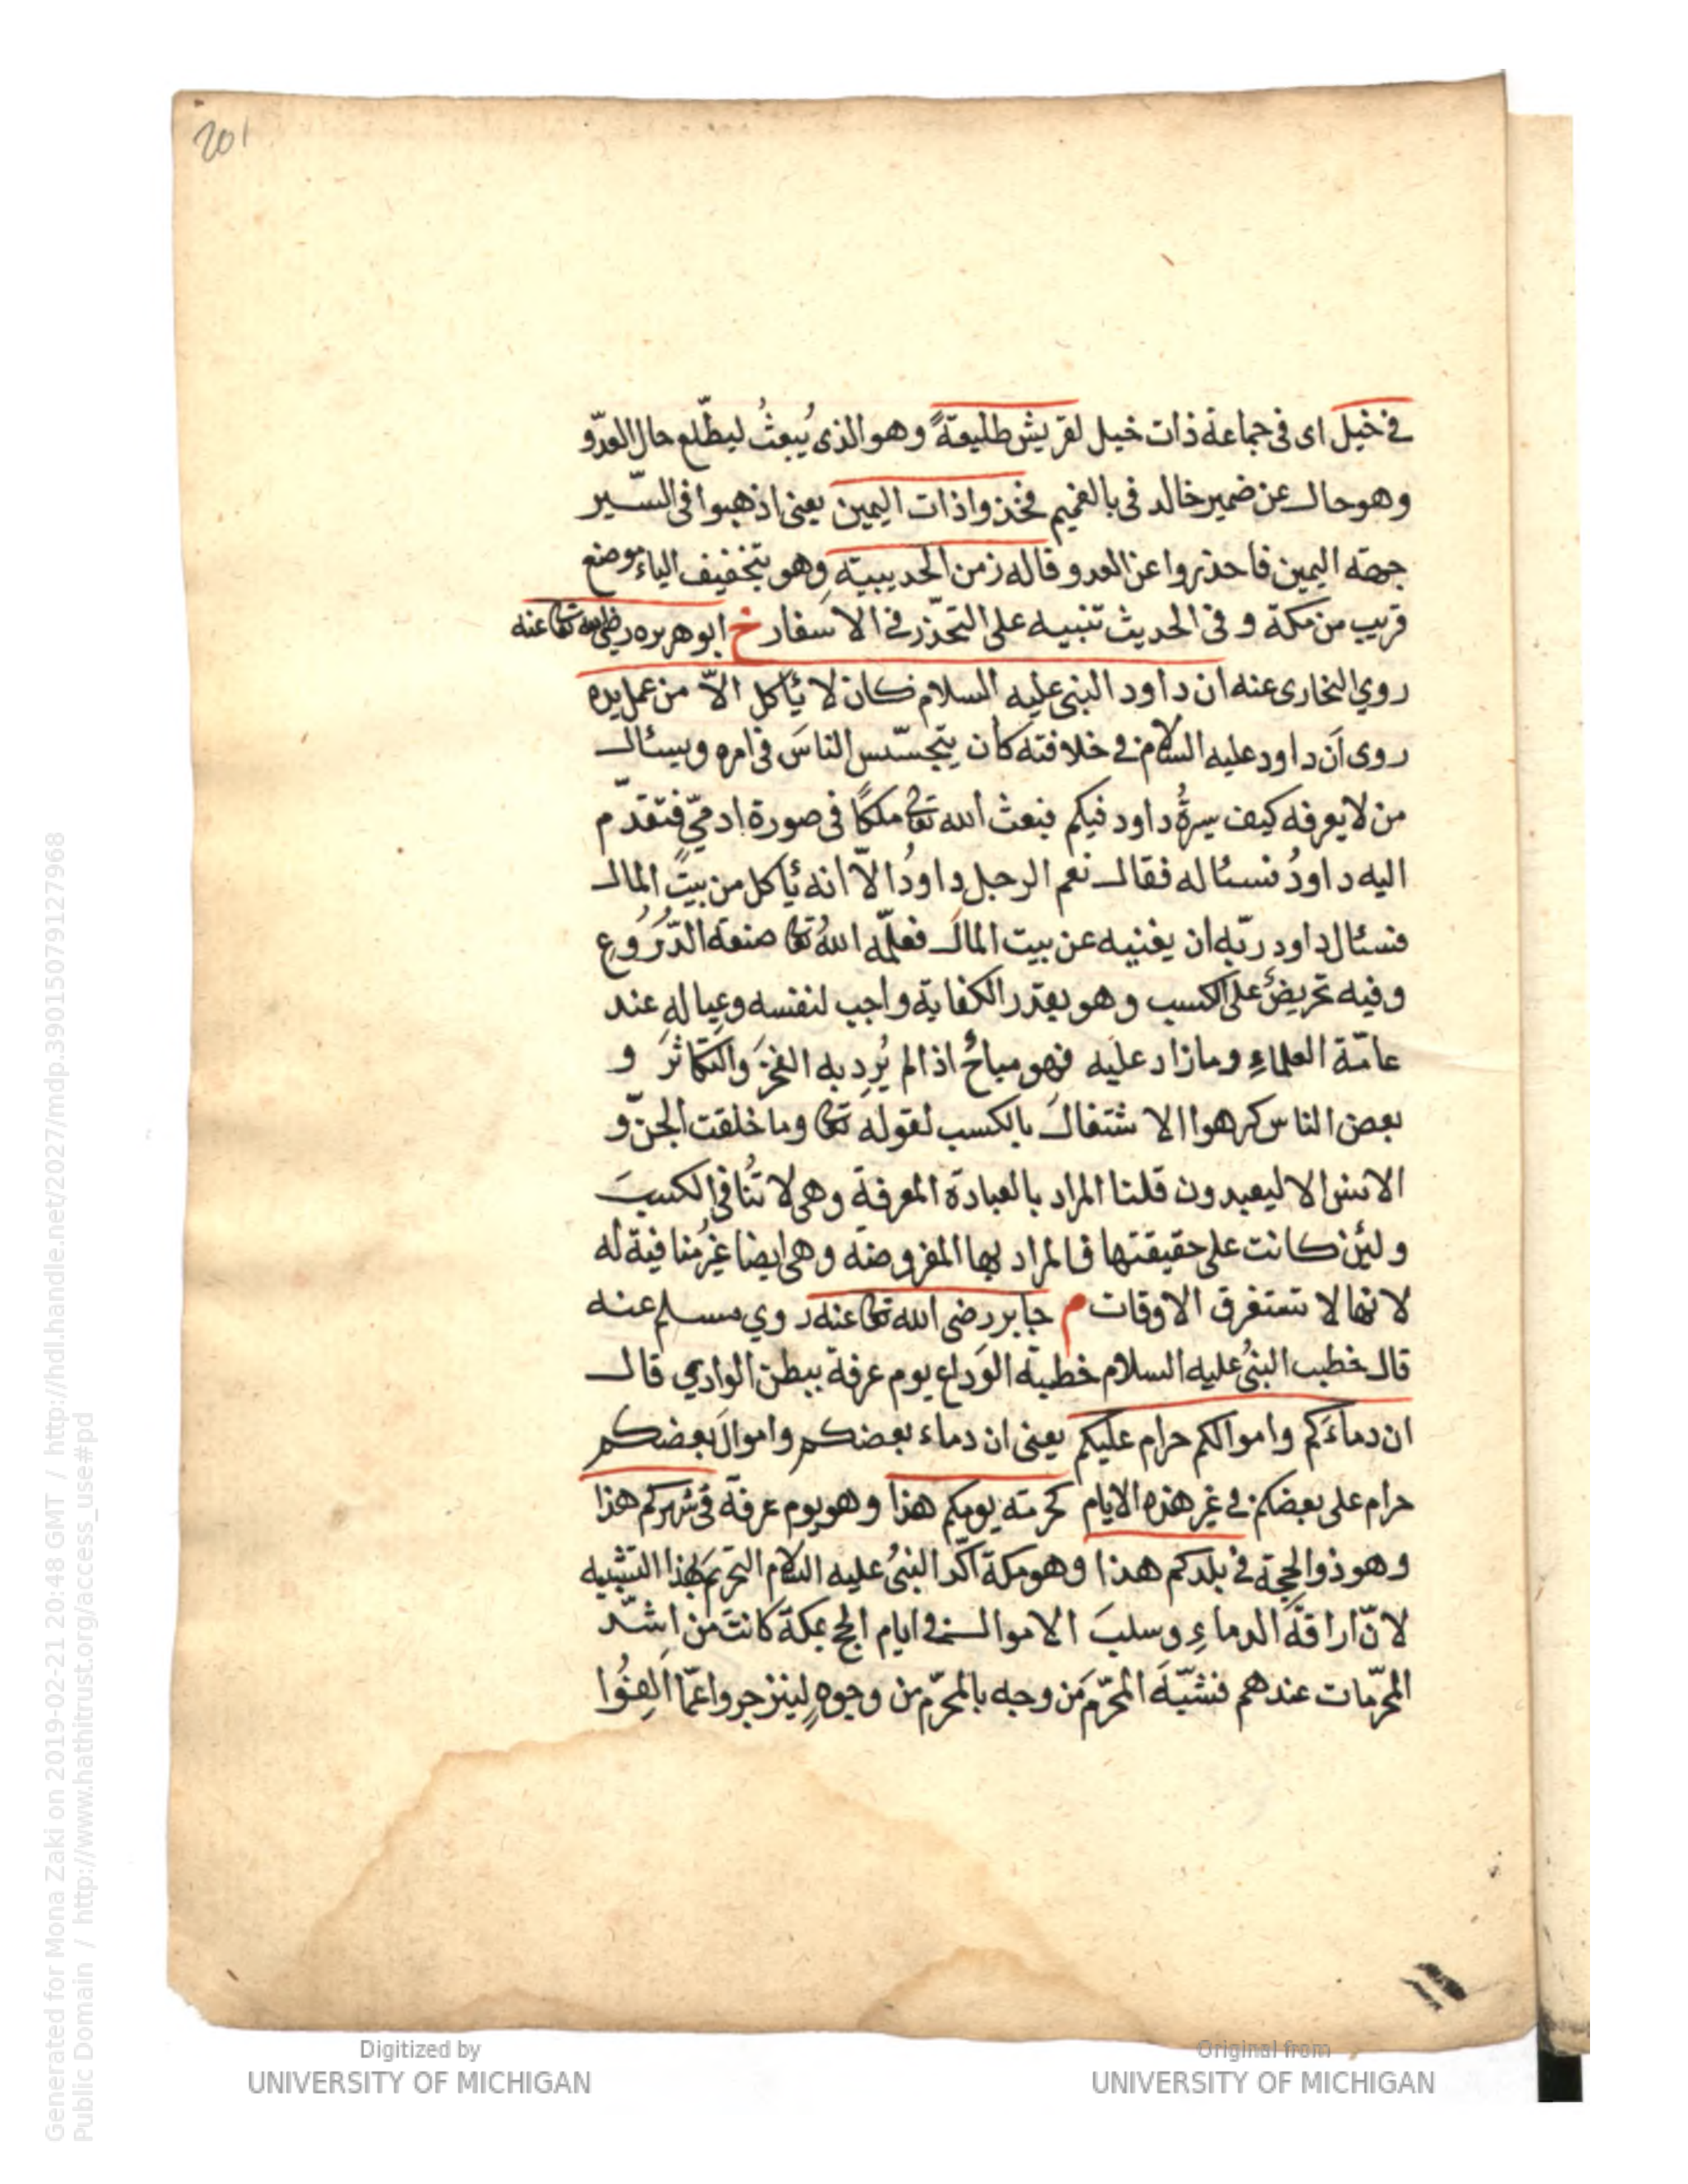 201
في خيل اى فى جماعة ذات خيل لقريش طليعةً وهو الذى يُبعثُ ليطّلع حال العدّو
وهو حال عن ضمير خالد فى بالغميم فخذوا ذات اليمين يعنى اذهبوا فى السّير
جهته اليمين فاحذروا عن العدو وقاله زمن الحديبيّة وهو بتخفيف الياء موضع
قريب من مكة وفى الحديث تنبيه على التحذّر في الاسفار خ ابو هريره رضى الله تعا عنه
روي البخارى عنه ان داود النبى عليه السلام كان لا يأكل الاّ من عمل يده
روى اَن داود عليه السلام في خلافته كان يتجسّس الناسَ فى امره ويسئال
من لا يعرفه كيف سيرةُ داود فيكم فبعث الله تعا ملكًا فى صورة ادمىّ فتقدّم
اليه داودُ فسئاله فقال نعم الرجل داودُ الاّ انه يأكل من بيت المال
فسئال داود ربّه ان يغنيه عن بيت المال فعلّمه اللهُ تعا صنعة الدّرُوعِ
وفيه تحريضٌ على الكسب وهو بقدر الكفاية واجب لنفسه وعياله عند
عامّة العلماءِ وما زاد عليه فهو مباحٌ اذا لم يُرِد به الفخرَ والتكاثرَ و
بعض الناس كرهوا الاشتغالَ بالكسب لقوله تعا وما خلقت الجنّ و
الانس الا ليعبدون قلنا المراد بالعبادة المعرفة وهى لا تُنافى الكسبَ
ولئن كانت على حقيقتها فالمراد بها المفروضة وهى ايضا غيرُ منافية له
لانها لا تستغرق الاوقات م جابر رضى الله تعا عنه روي مسلم عنه
قال خطب النبىُ عليه السلام خطبة الوَداع يوم عرفة ببطن الوادي قال
ان دماءَكم واموالكم حرام عليكم يعنى ان دماء بعضكم واموالَ بعضكم
حرام على بعضكم في غير هذه الايام كحرمة يومكم هذا وهو يوم عرفة فى شهركم هذا
وهو ذو الحجة في بلدكم هذا وهو مكة اكّد النبىُ عليه السلام التحريم بهذا التشبيه
لانّ اراقَة الدماءِ وسلبَ الاموال في ايام الحج بمكة كانت من اشدّ
المحرّمات عندهم فشبّهَ المحرّم من وجه بالمحرّم من وجوهٍ لينزجروا عمّا اَلِفُوا
Digitized by
UNIVERSITY OF MICHIGAN
Original from
UNIVERSITY OF MICHIGAN
Generated for Mona Zaki on 2019-02-21 20:48 GMT / http://hdl.handle.net/2027/mdp.39015079127968
Public Domain / http://www.hathitrust.org/access_use#pd